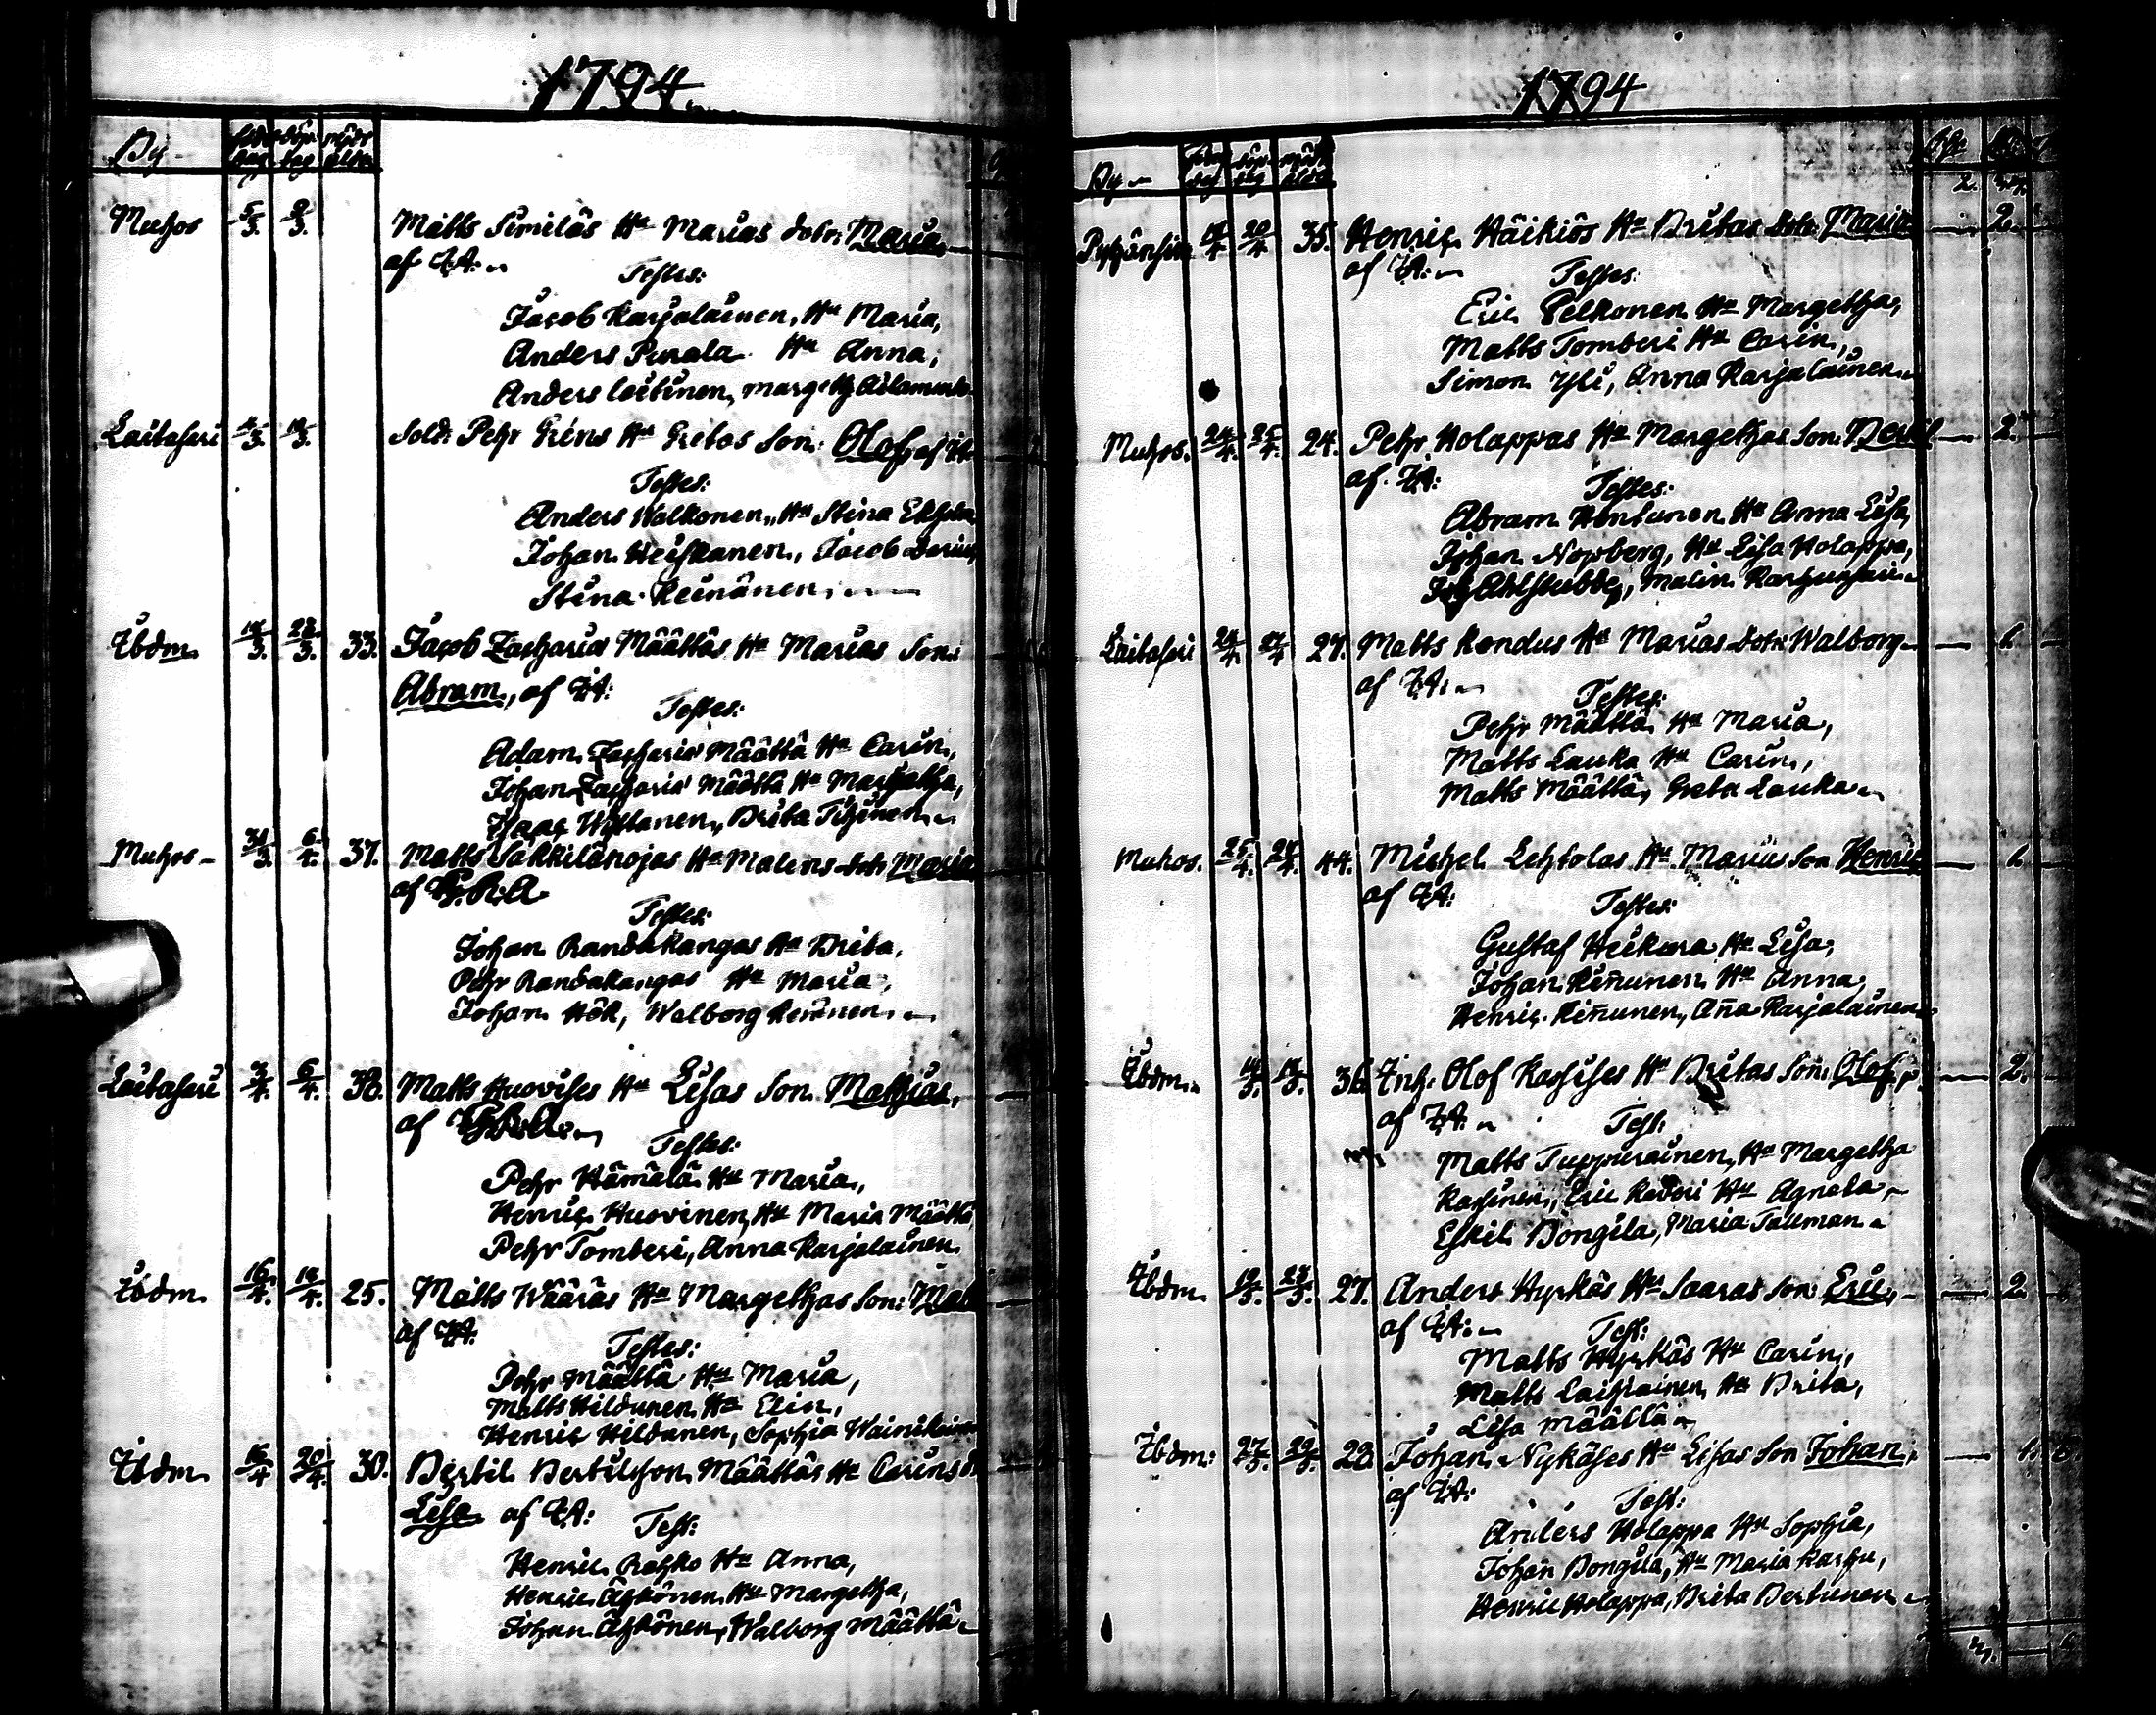 1794
By födelse dag döpelse dag mödr ålder
Muhos 5/3. 9/3. Matts Similäs Hu Marias dotr: Maria
af I.A.
Testes:
Jacob Karjalainen, Hu Maria,
Anders Pirala Hu Anna,
Anders Leitinen, Margeth
Laitasari 3. 3. Sold: Pehr Gréns Hu Gretas Son: Olof, af
Testes:
Anders Walkonen, Hu Stina
Johan Heiskanen, Jacob
Stina Keinänen.
Ibdm 3. 23/3. 33. Jacob Zacharias Määttäs Hu Marias Son:
Abram, af I.A:
Testes:
Adam Zacharias Määttä Hu Carin,
Johan Zacharias Määttä Hu Margetha,
Isaac Wyttanen, Brita Tihinen
Muhos 31/3. 6/4. 37. Matts Sakkilänojas Hu Malins dotr Maria
af
Testes:
Johan Randakangas Hu Brita,
Pehr Randakangas Hu Maria,
Johan Hök, Walborg Keinänen.
Laitasari 3/4. 6/4. 38. Matts Huovises Hu Lisas Son Mathias,
af
Testes:
Pehr Hämälä Hu Maria,
Henric Huovinen, Hu Maria Määttä
Pehr Tomberi, Anna Karjalainen
Ibdm 16/4. 18/4. 25. Matts Wääräs Hu Margethas Son:
af I.A:
Testes:
Pehr Määttä Hu Maria,
Matts Hildunen Hu Elin,
Henric Hildunen, Sophia
Ibdm 16/4 20/4. 30. Bertil Bertilsson Määttäs Hu Carins
Lisa af I.A:
Test:
Henric Rahko Hu Anna,
Henric Äyhönen Hu Margetha,
Johan Äyhönen, Walborg Määttä
1794
By födelse dag döpelse dag mödr ålder
2.
4. 20/4. 35. Henric Häikiös Hu Britas dotr: Maria 2.
af I.A:
Testes:
Eric Pelkonen Hu Margetha,
Matts Tomberi Hu Carin,
Simon Yli, Anna Karjalainen
Muhos. 24/4. 25/4. 24. Pehr Holappas Hu Margethas Son: 2.
af I.A:
Testes:
Abram Hentunen Hu Anna Lisa,
Johan Norberg, Hu Lisa Holappa,
Joh Ahlstubbe, Malin
Laitasari 24/4. 27/4 27. Matts Kondus Hu Marias dotr: Walborg
af I.A:
Testes:
Pehr Määttä Hu Maria,
Matts Lauka Hu Carin,
Matts Määttä, Greta Lauka
Muhos. 25/4. 27/4. 44. Michel Lehtolas Hu Marias Son Henric
af I.A:
Testes:
Gustaf Heikura Hu Lisa,
Johan Kiñunen Hu Anna,
Henric Kiñunen, Aña Karjalainen
Ibdm 5. 5. 36. Inh. Olof Kassises Hu Britas Son: Olof, 2.
af I.A:
Test:
Matts Tuppurainen, Hu Margetha
Kassinen, Eric Hu Agneta,
Eskil Bongila, Maria Tallman
Ibdm 5. 5. 27. Anders Hyrkäs Hu Saaras Son: Eric, 2.
af I.A:
Test:
Matts Hyrkäs Hu Carin,
Matts Laitiainen, Hu Brita,
Lisa Määttä
Ibdm: 27/5. 29/5. 28. Johan Nykäses Hu Lisas Son Johan,
af I.A:
Test:
Anders Holappa Hu Sophia,
Johan Bongila, Hu Maria Karhu,
Henric Holappa, Brita Bertunen